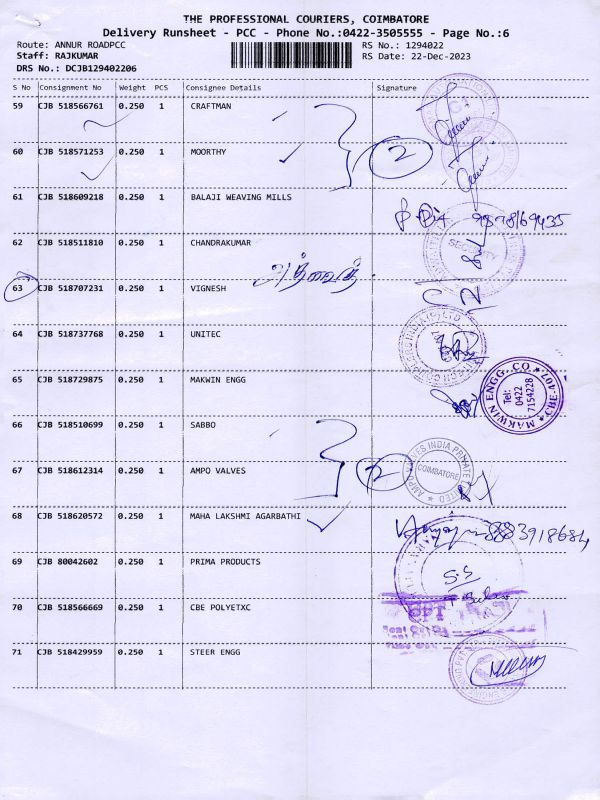 THE PROFESSIONAL COURIERS, COIMBATORE
Delivery Runsheet - PCC - Phone No.:0422-3505555 - Page No.:6
Route: ANNUR ROADPCC RS No.: 1294022
Staff: RAJKUMAR RS Date: 22-Dec-2023
DRS No.: DCJB129402206
S No Consignment No Weight PCS Consignee Details Signature
59 CJB 518566761 0.250 1 CRAFTMAN
60 CJB 518571253 0.250 1 MOORTHY 2
61 CJB 518609218 0.250 1 BALAJI WEAVING MILLS
62 CJB 518511810 0.250 1 CHANDRAKUMAR
SECURITY
63 CJB 518707231 0.250 1 VIGNESH
64 CJB 518737768 0.250 1 UNITEC
65 CJB 518729875 0.250 1 MAKWIN ENGG
MAKWIN ENGG. CO
Tel:
0422
7154228
66 CJB 518510699 0.250 1 SABBO
67 CJB 518612314 0.250 1 AMPO VALVES 2
AMPO VALVES INDIA PRIVATE LIMITED
COIMBATORE
68 CJB 518620572 0.250 1 MAHA LAKSHMI AGARBATHI
69 CJB 80042602 0.250 1 PRIMA PRODUCTS
70 CJB 518566669 0.250 1 CBE POLYETXC
71 CJB 518429959 0.250 1 STEER ENGG